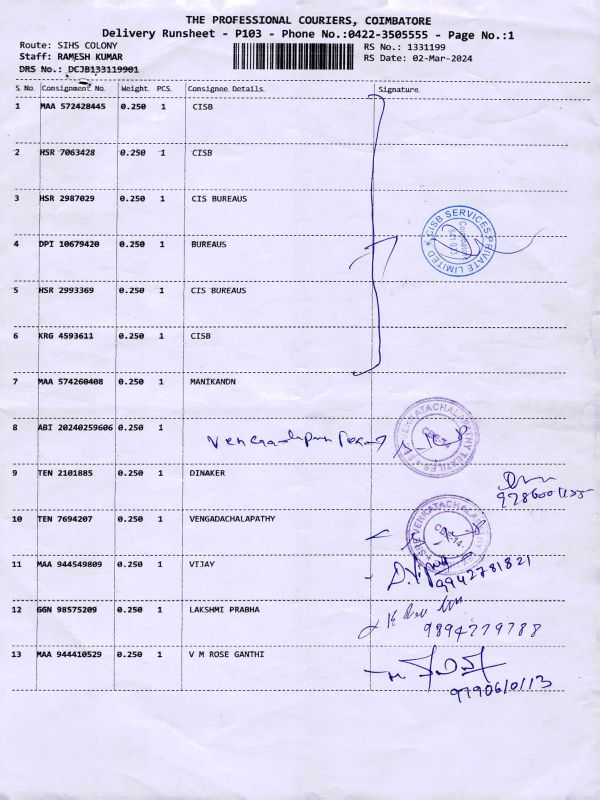 THE PROFESSIONAL COURIERS, COIMBATORE
Delivery Runsheet - P103 - Phone No.:0422-3505555 - Page No.:1
Route: SIHS COLONY
RS No.: 1331199
Staff: RAMESH KUMAR
RS Date: 02-Mar-2024
DRS No.: DCJB133119901
S No. Consignment No. Weight PCS Consignee Details Signature
1 MAA 572428445 0.250 1 CISB
2 HSR 7063428 0.250 1 CISB
3 HSR 2987029 0.250 1 CIS BUREAUS
CISB SERVICES PRIVATE LIMITED
4 DPI 10679420 0.250 1 BUREAUS
5 HSR 2993369 0.250 1 CIS BUREAUS
6 KRG 4593611 0.250 1 CISB
7 MAA 574260408 0.250 1 MANIKANDN
8 ABI 20240259606 0.250 1
VENKATACHALAPATHY TEXTILES
9 TEN 2101885 0.250 1 DINAKER
10 TEN 7694207 0.250 1 VENGADACHALAPATHY
SRI VENKATACHALAPATHY
CBE-14.
11 MAA 944549809 0.250 1 VIJAY
9942781821
12 GGN 98575209 0.250 1 LAKSHMI PRABHA
9894279788
13 MAA 944410529 0.250 1 V M ROSE GANTHI
9790610113